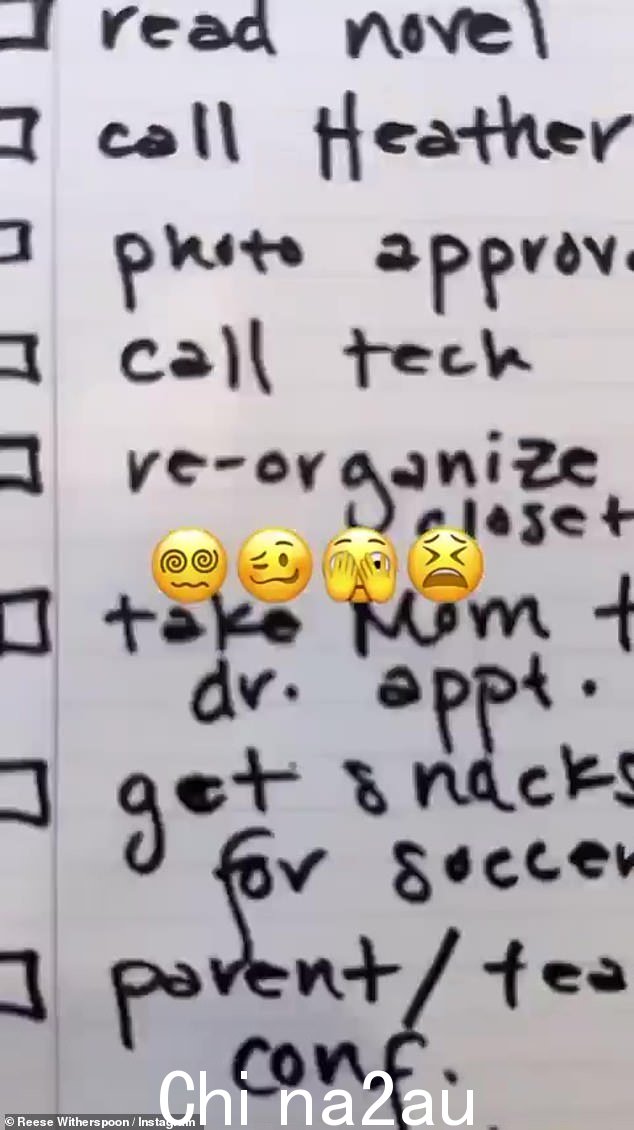 read novel
call Heather
photo approv
call tech
re-organize
closet
take Mom t
dr. appt.
get snacks
for soccer
parent/tea
conf.
China2au
© Reese Witherspoon / Instagram